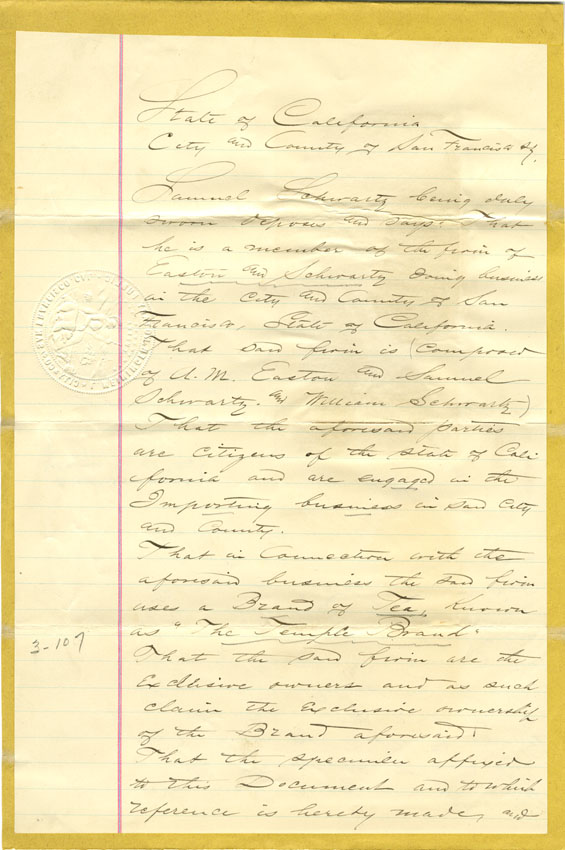 State of California
City and County of San Francisco ss.
Samuel Schwartz being duly
sworn deposes and says: That
he is a member of the firm of
Easton and Schwartz doing business
in the City and County of San
Francisco, State of California.
That said firm is (composed
of A. M. Easton and Samuel
Schwartz. and William Schwartz)
That the aforesaid parties
are citizens of the state of Cali
fornia and are engaged in the
Importing business in said City
and County.
That in Connection with the
aforesaid business the said firm
uses a Brand of Tea, known
as "The Temple Brand"
3-107
That the said firm are the
Exclusive owners and as such
claim the Exclusive ownership
of the Brand aforesaid
That the specimen affixed
to this Document and to which
reference is hereby made, and